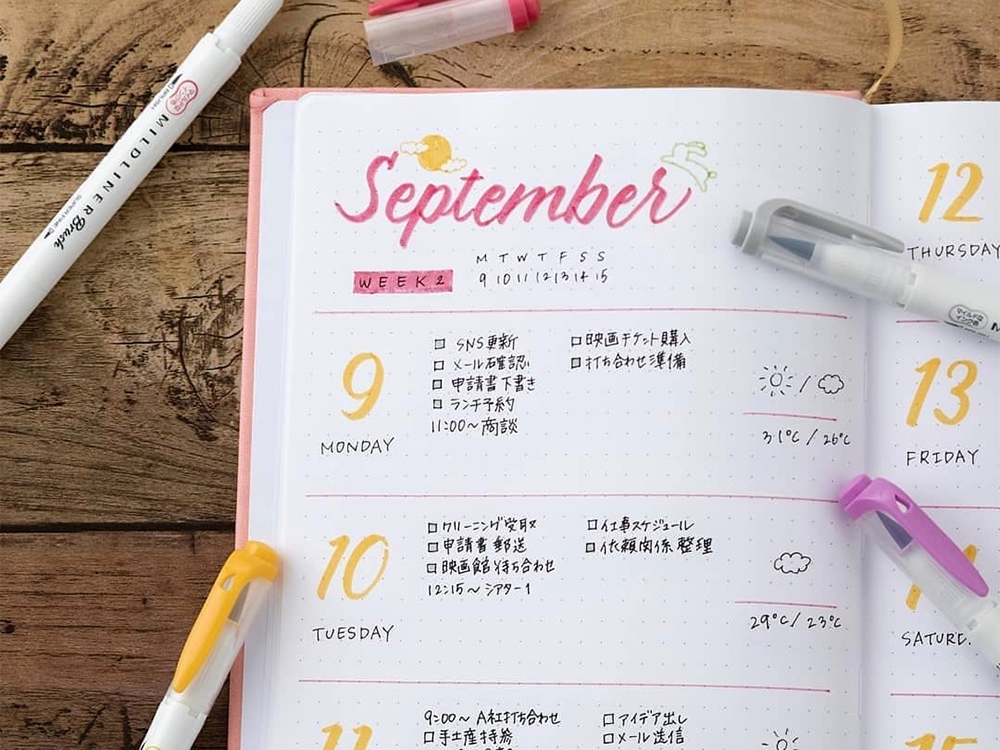 MILDLINER Brush
September
WEEK 2
M T W T F S S
9 10 11 12 13 14 15
9
MONDAY
□ SNS更新
□ メール確認
□ 申請書下書き
□ ランチ予約
11:00～ 商談
□映画チケット購入
□打ち合わせ準備
31°C / 26°C
10
TUESDAY
□クリーニング受取
□申請書郵送
□映画館待ち合わせ
12:15～ シアター1
□仕事スケジュール
□依頼関係整理
29°C / 23°C
11
9:00～ A社打ち合わせ
□手土産持参
□アイデア出し
□メール送信
12
THURSDAY
13
FRIDAY
15